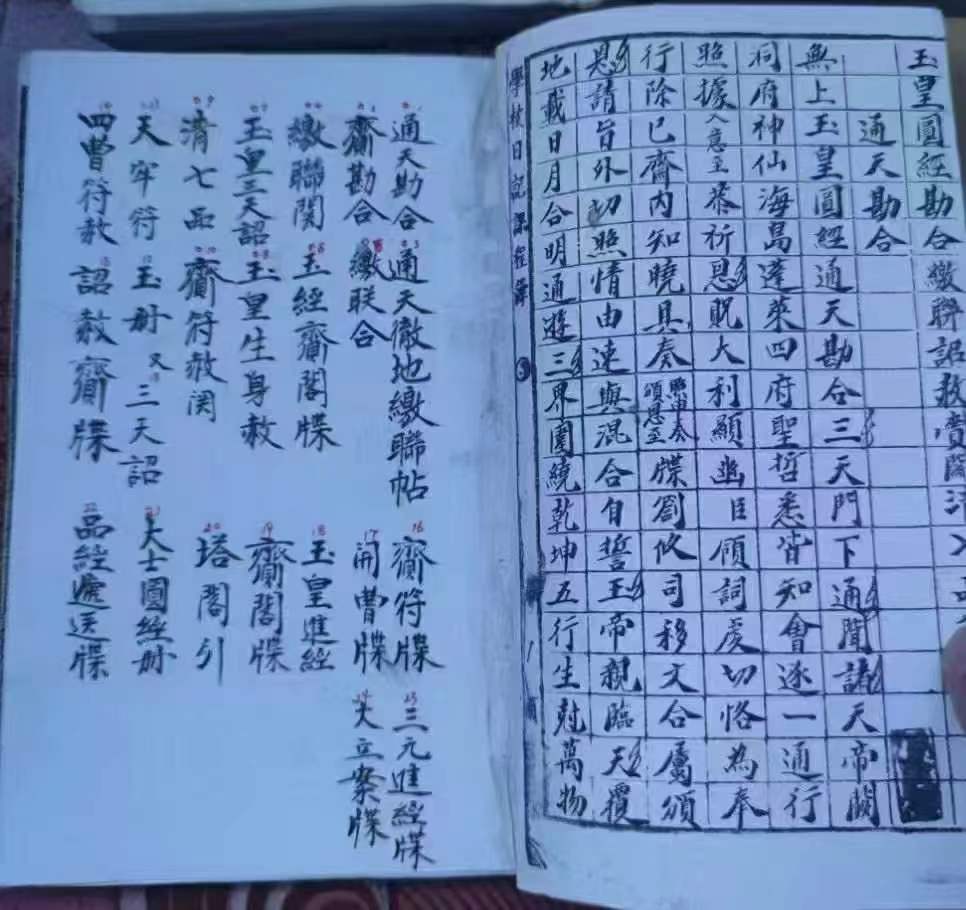 玉皇圓經勘合繳聯詔赦賣闗
通天勘合
無上玉皇圓經通天勘合三天門下通聞諸天帝闕
洞府神仙海島蓬萊四府聖哲悉皆知會逐一通行
照據入意至恭祈恩貺大利顯幽臣領詞虔切恪為奉
行除已齋内知曉具奏照由奏頒恩至牒劄攸司移文合屬頒
恩請旨外切照情由速與混合自誓玉帝親臨天覆
地載日月合明通遊三界圍繞乾坤五行生尅萬物
學校日記課程簿
1 通天勘合
2 齋勘合
3 通天徹地繳聯帖
繳联合
繳聯関
玉經齋閣牒
玉皇三天詔
玉皇生身赦
清七品
齋符赦関
天牢符
玉册 又 三天詔
四曹符赦
詔赦齋牒
16 齋符牒
17 開曹牒
18 玉皇進經
19 齋閣牒
20 塔閣引
21 大士圓經册
22 品經遞送牒
23 三元進經牒
24 大立案牒